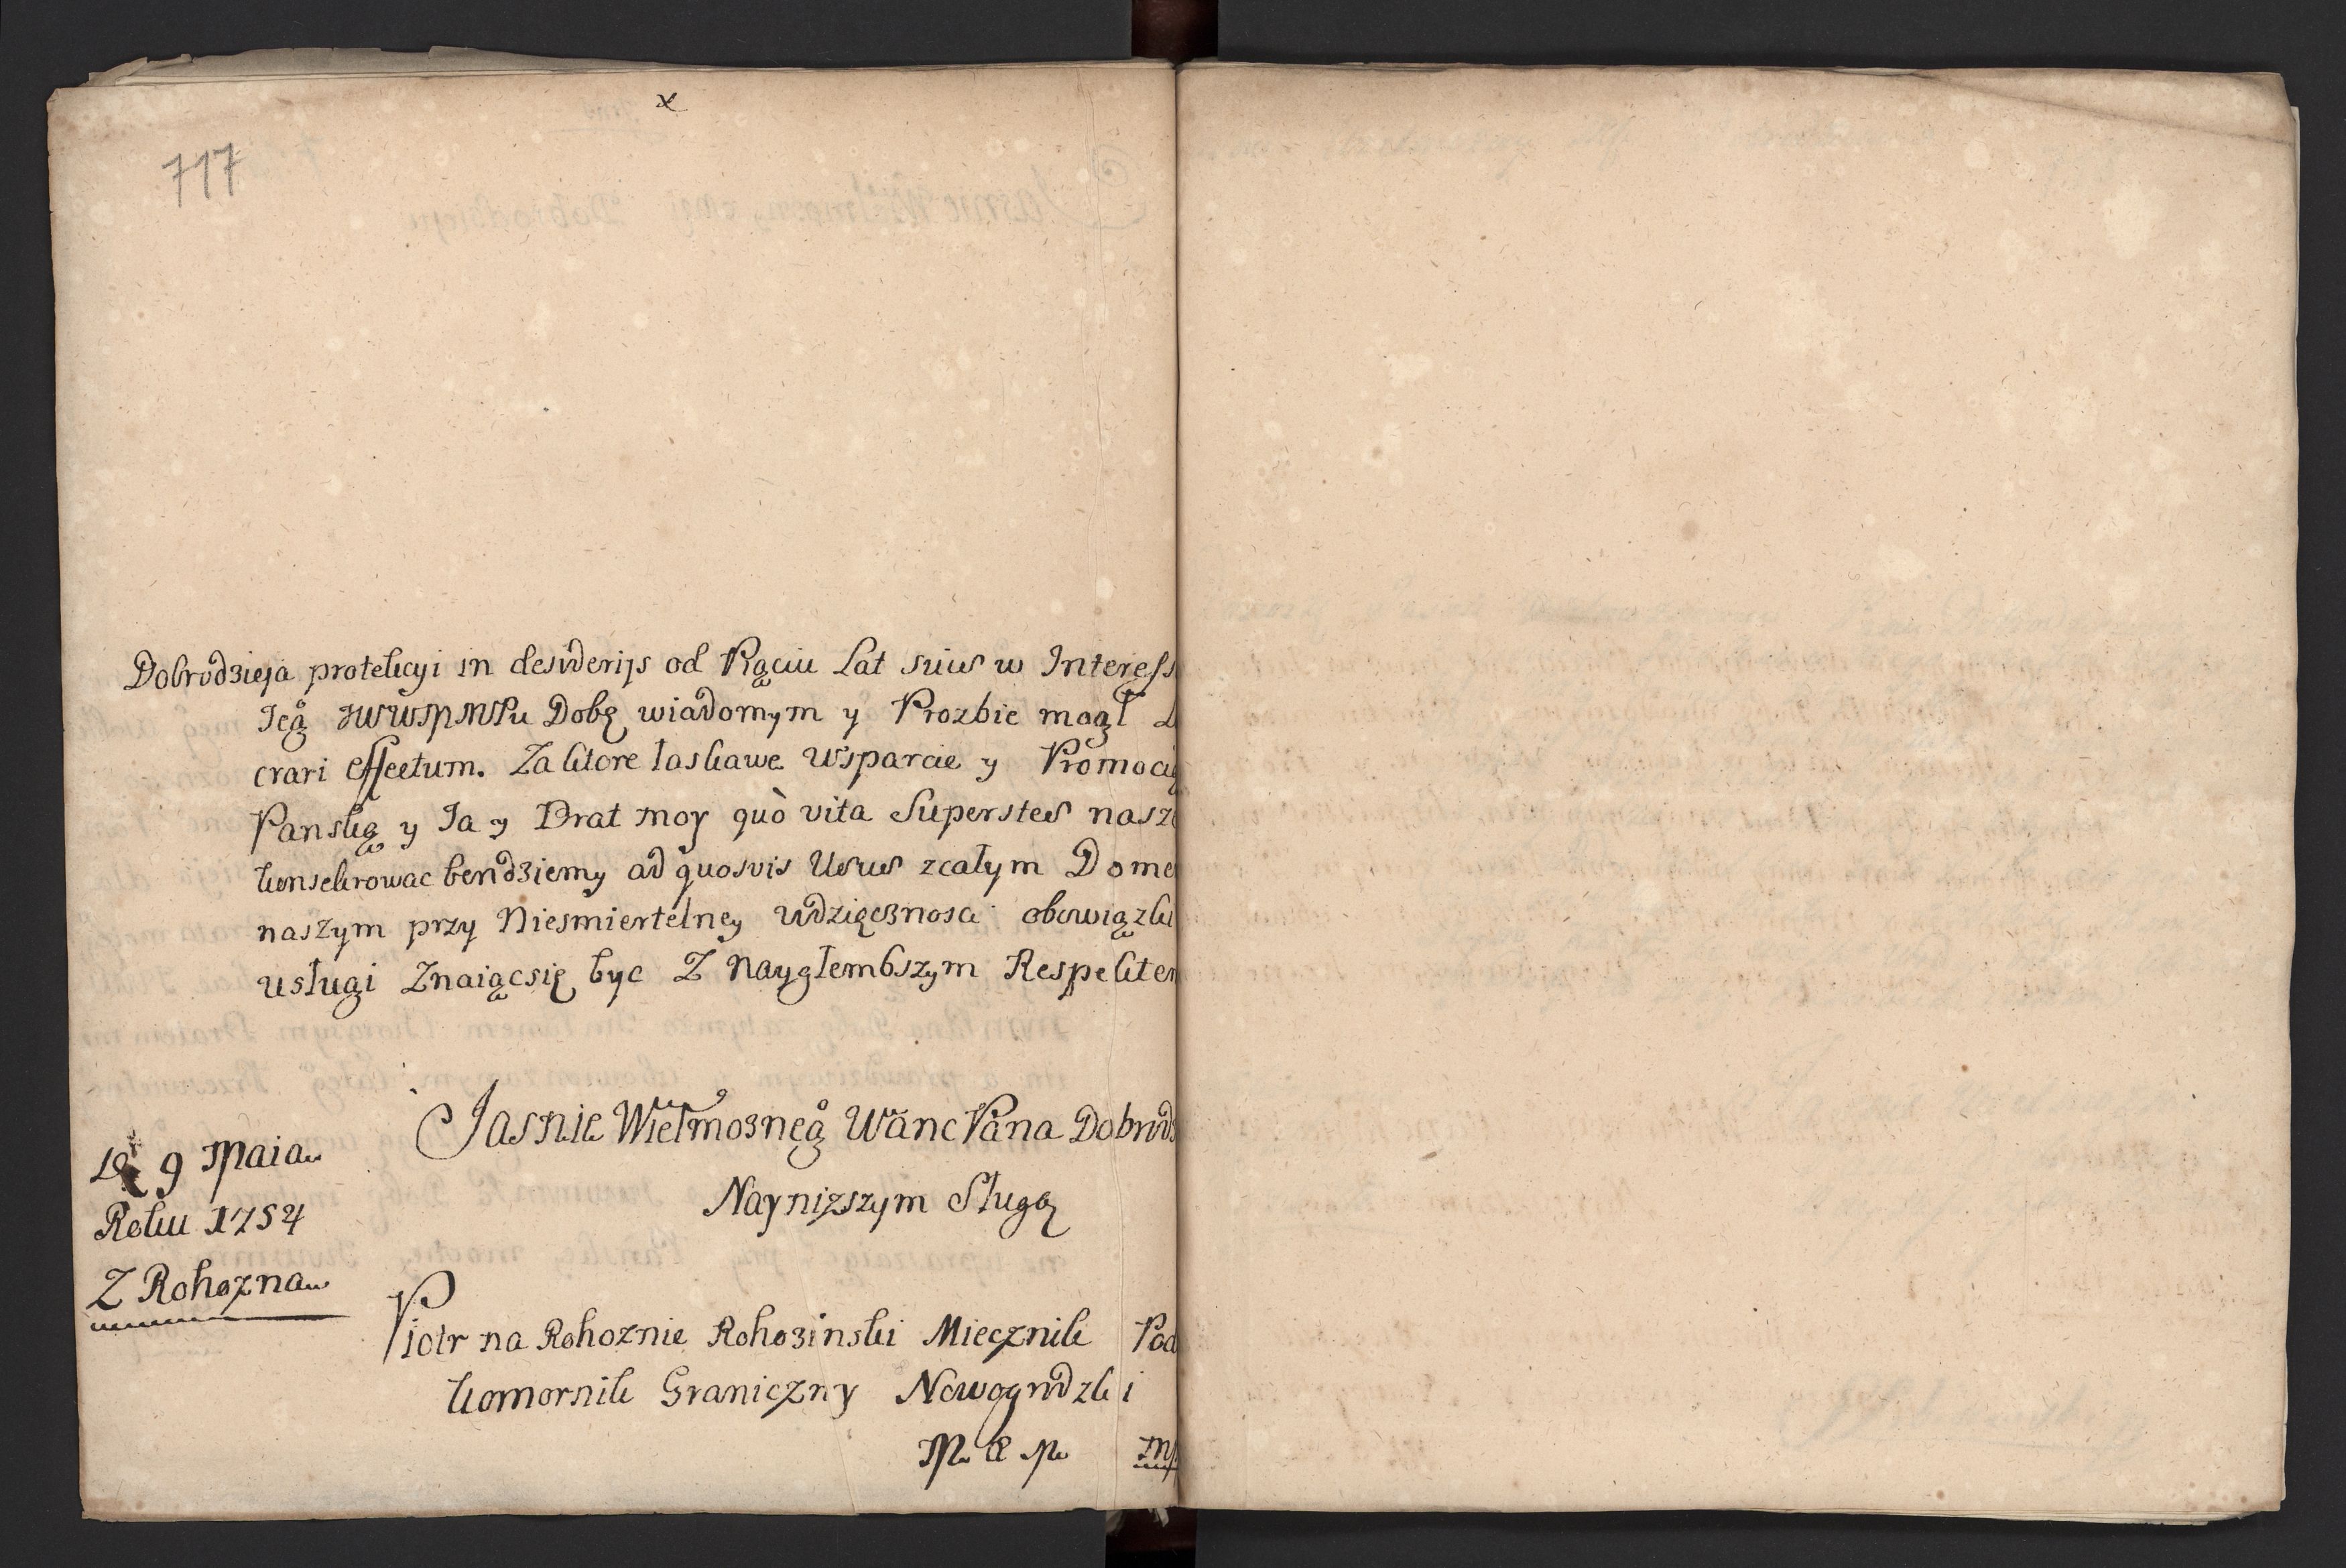 x
717
Dobrodzieja protekcyi in desiderijs od Pięciu Lat suis w Interess
Jeg̊ JWWJPMMPu Dobę wiadomym y Prozbie mogł
crari effectum. Za ktore łaskawe Wsparcie y Promocię
Panską y Ja y Brat moy quò vita Superstes nasz
konsekrowac bendziemy ad quosvis Usus z całym Dome
naszym przy Niesmiertelney wdzięcznosci obowiązku
usługi Znaiąc się byc Z Naygłembszym Respektem
Jasnie Wielmozneg̊ Wanc Pana Dobrodz
Naynizszym Sługą
9 Maia
Roku 1754
Z Rohozna
Piotr na Rohoznie Rohozinski Miecznik Pod
komornik Graniczny Nowogrodzki